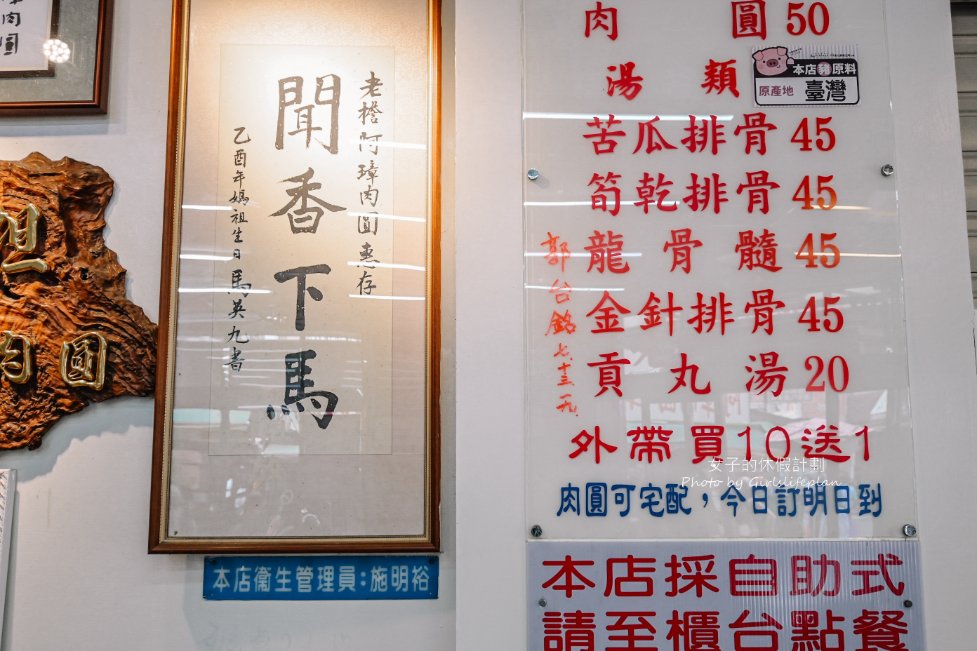 肉圓
老擔阿璋肉圓惠存
聞香下馬
乙酉年媽祖生日馬英九書
本店衛生管理員：施明裕
肉圓50
湯類
本店豬原料
原產地 臺灣
苦瓜排骨45
筍乾排骨45
龍骨髓45
金針排骨45
貢丸湯20
郭台銘
外帶買10送1
女子的休假計劃
Photo by Girlslifeplan
肉圓可宅配，今日訂明日到
本店採自助式
請至櫃台點餐